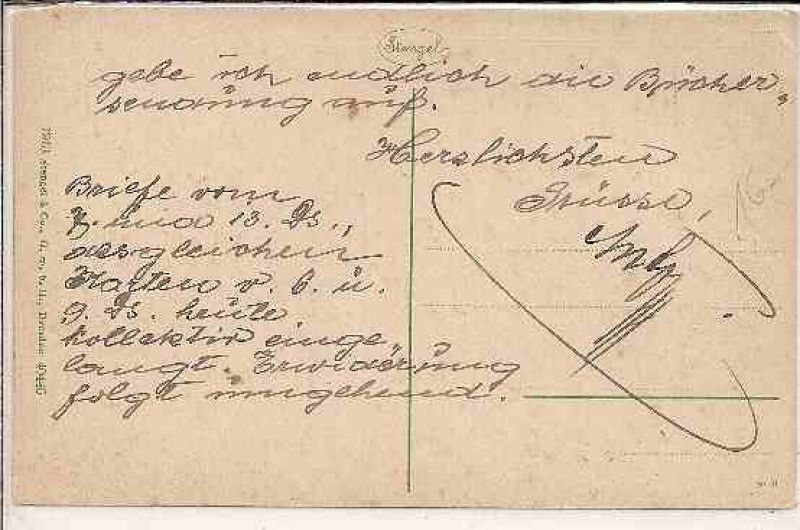 Stengel
gebe ich endlich die Bücher-
sendung auf.
Herzlichsten
Grüsse,
Briefe vom
7. und 13. Ds.,
desgleichen
Karten v. 6. u.
9. Ds. heute
kollektiv einge-
langt. Erwiderung
folgt umgehend.
Stengel & Co., G. m. b. H., Dresden